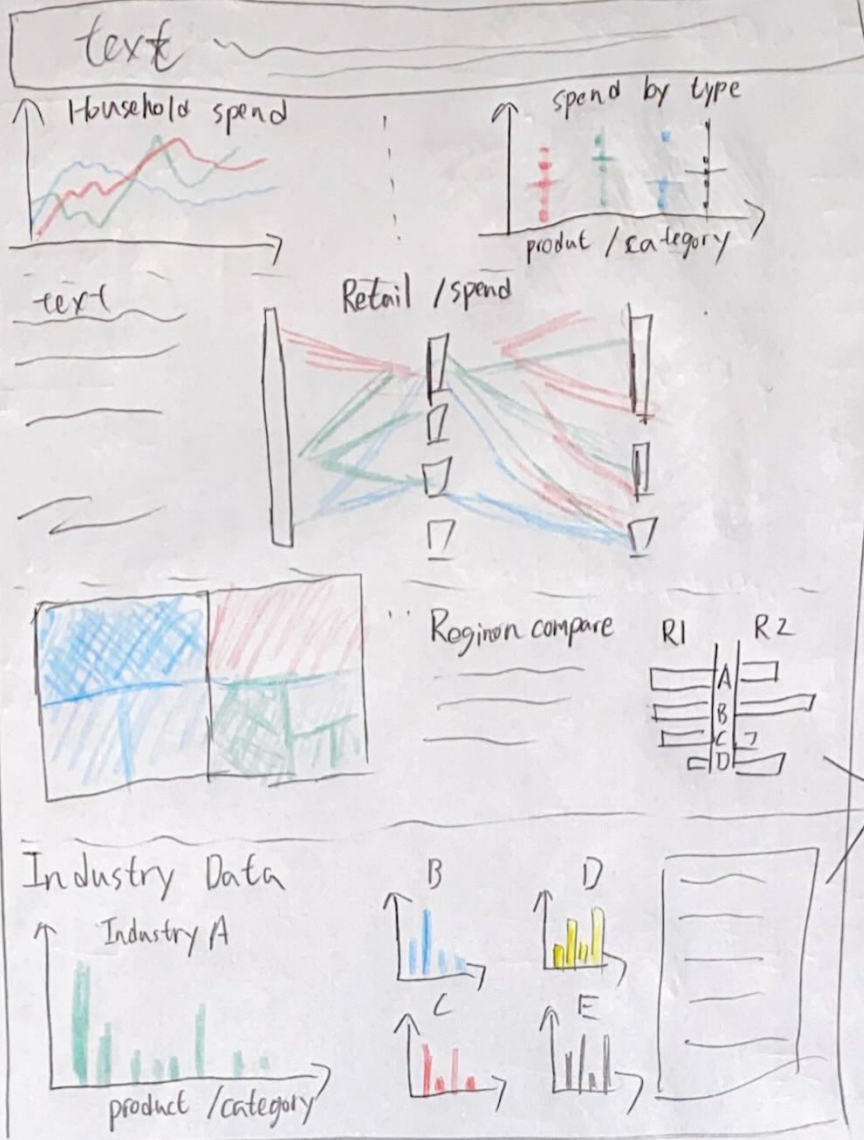 text
Household spend
spend by type
produt / category
text
Retail / spend
Reginon compare
R1 R2
A
B
C
D
Industry Data
Industry A
product / category
B
D
C
E